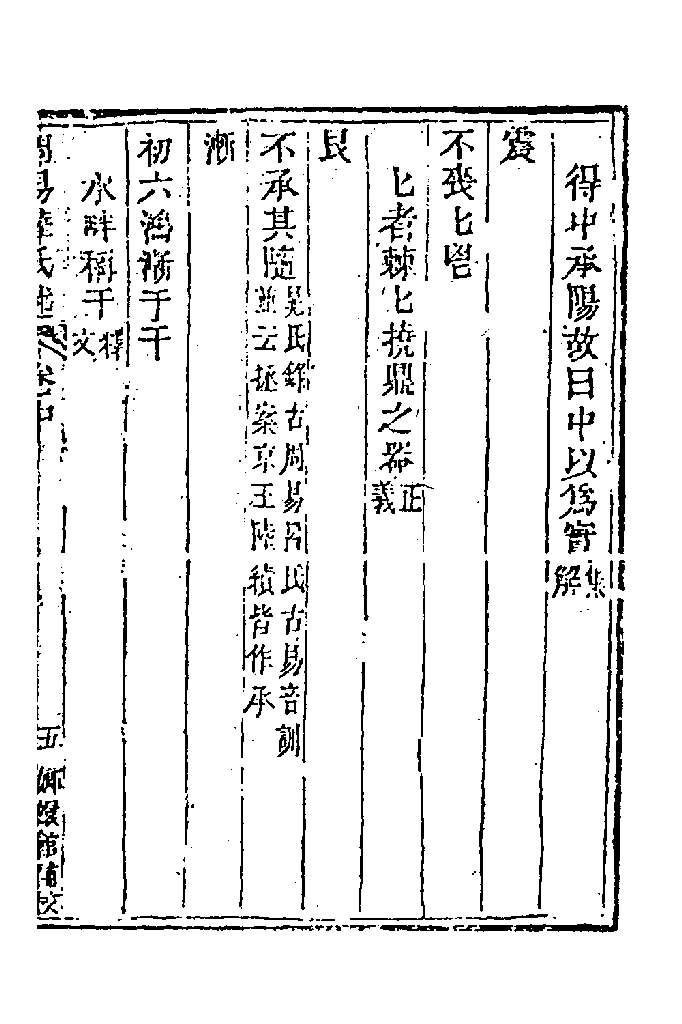 得中承陽故曰中以爲實集解
震
不喪匕鬯
匕者棘匕撓鼎之器正義
艮
不承其隨吳氏錄古周易呂氏古易音訓並云拯案京王陸績皆作承
漸
初六鴻漸于干
水畔稱干釋文
周易陸氏述 卷中
五